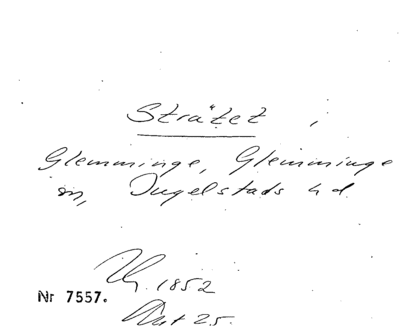 Strätet,
Glemminge, Glemminge
sn, Ingelstads hd
Uts. 1852
Nr 7557.
Akt 25.